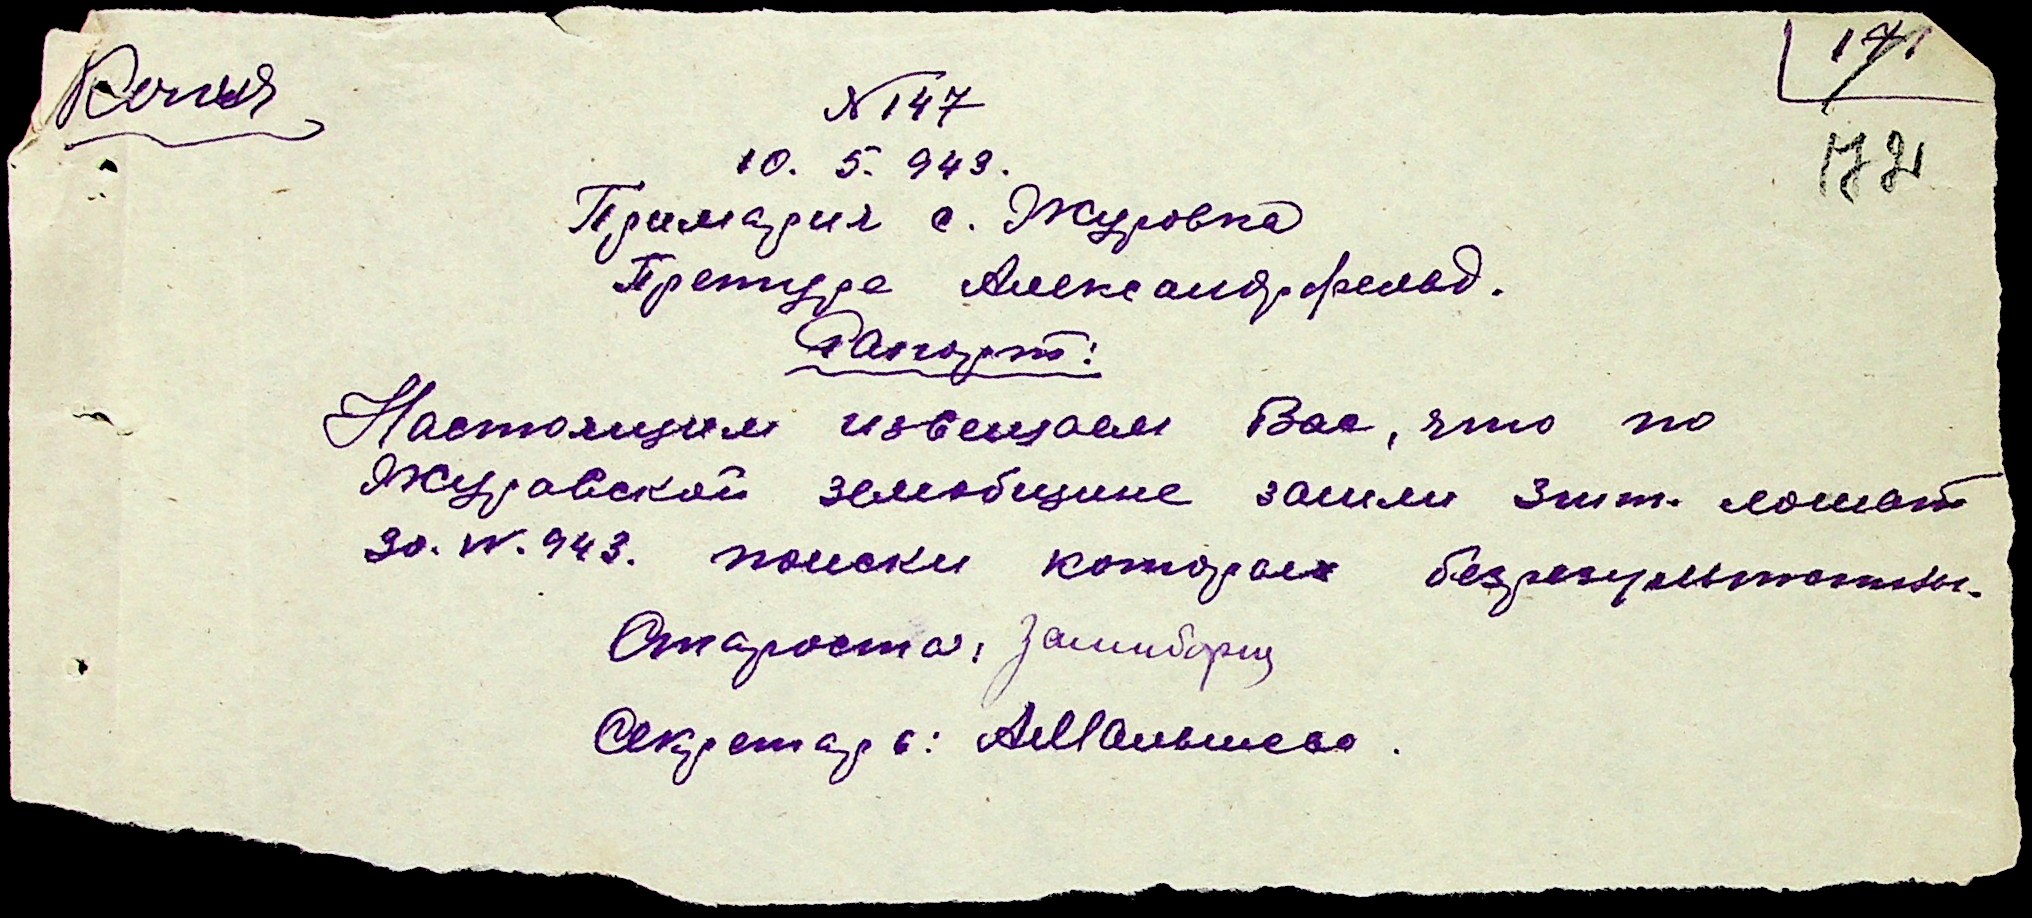 Копия
171
172
№ 147
10. 5. 943.
Примария с. Журовка
Претуре Александрфельд.
Рапорт:
Настоящим извещаем Вас, что по
Журавской земобщине зашли 3 шт. лошат
30. IV. 943. поиски которых безрезультатны.
Староста:
Секретарь: АМальшева.